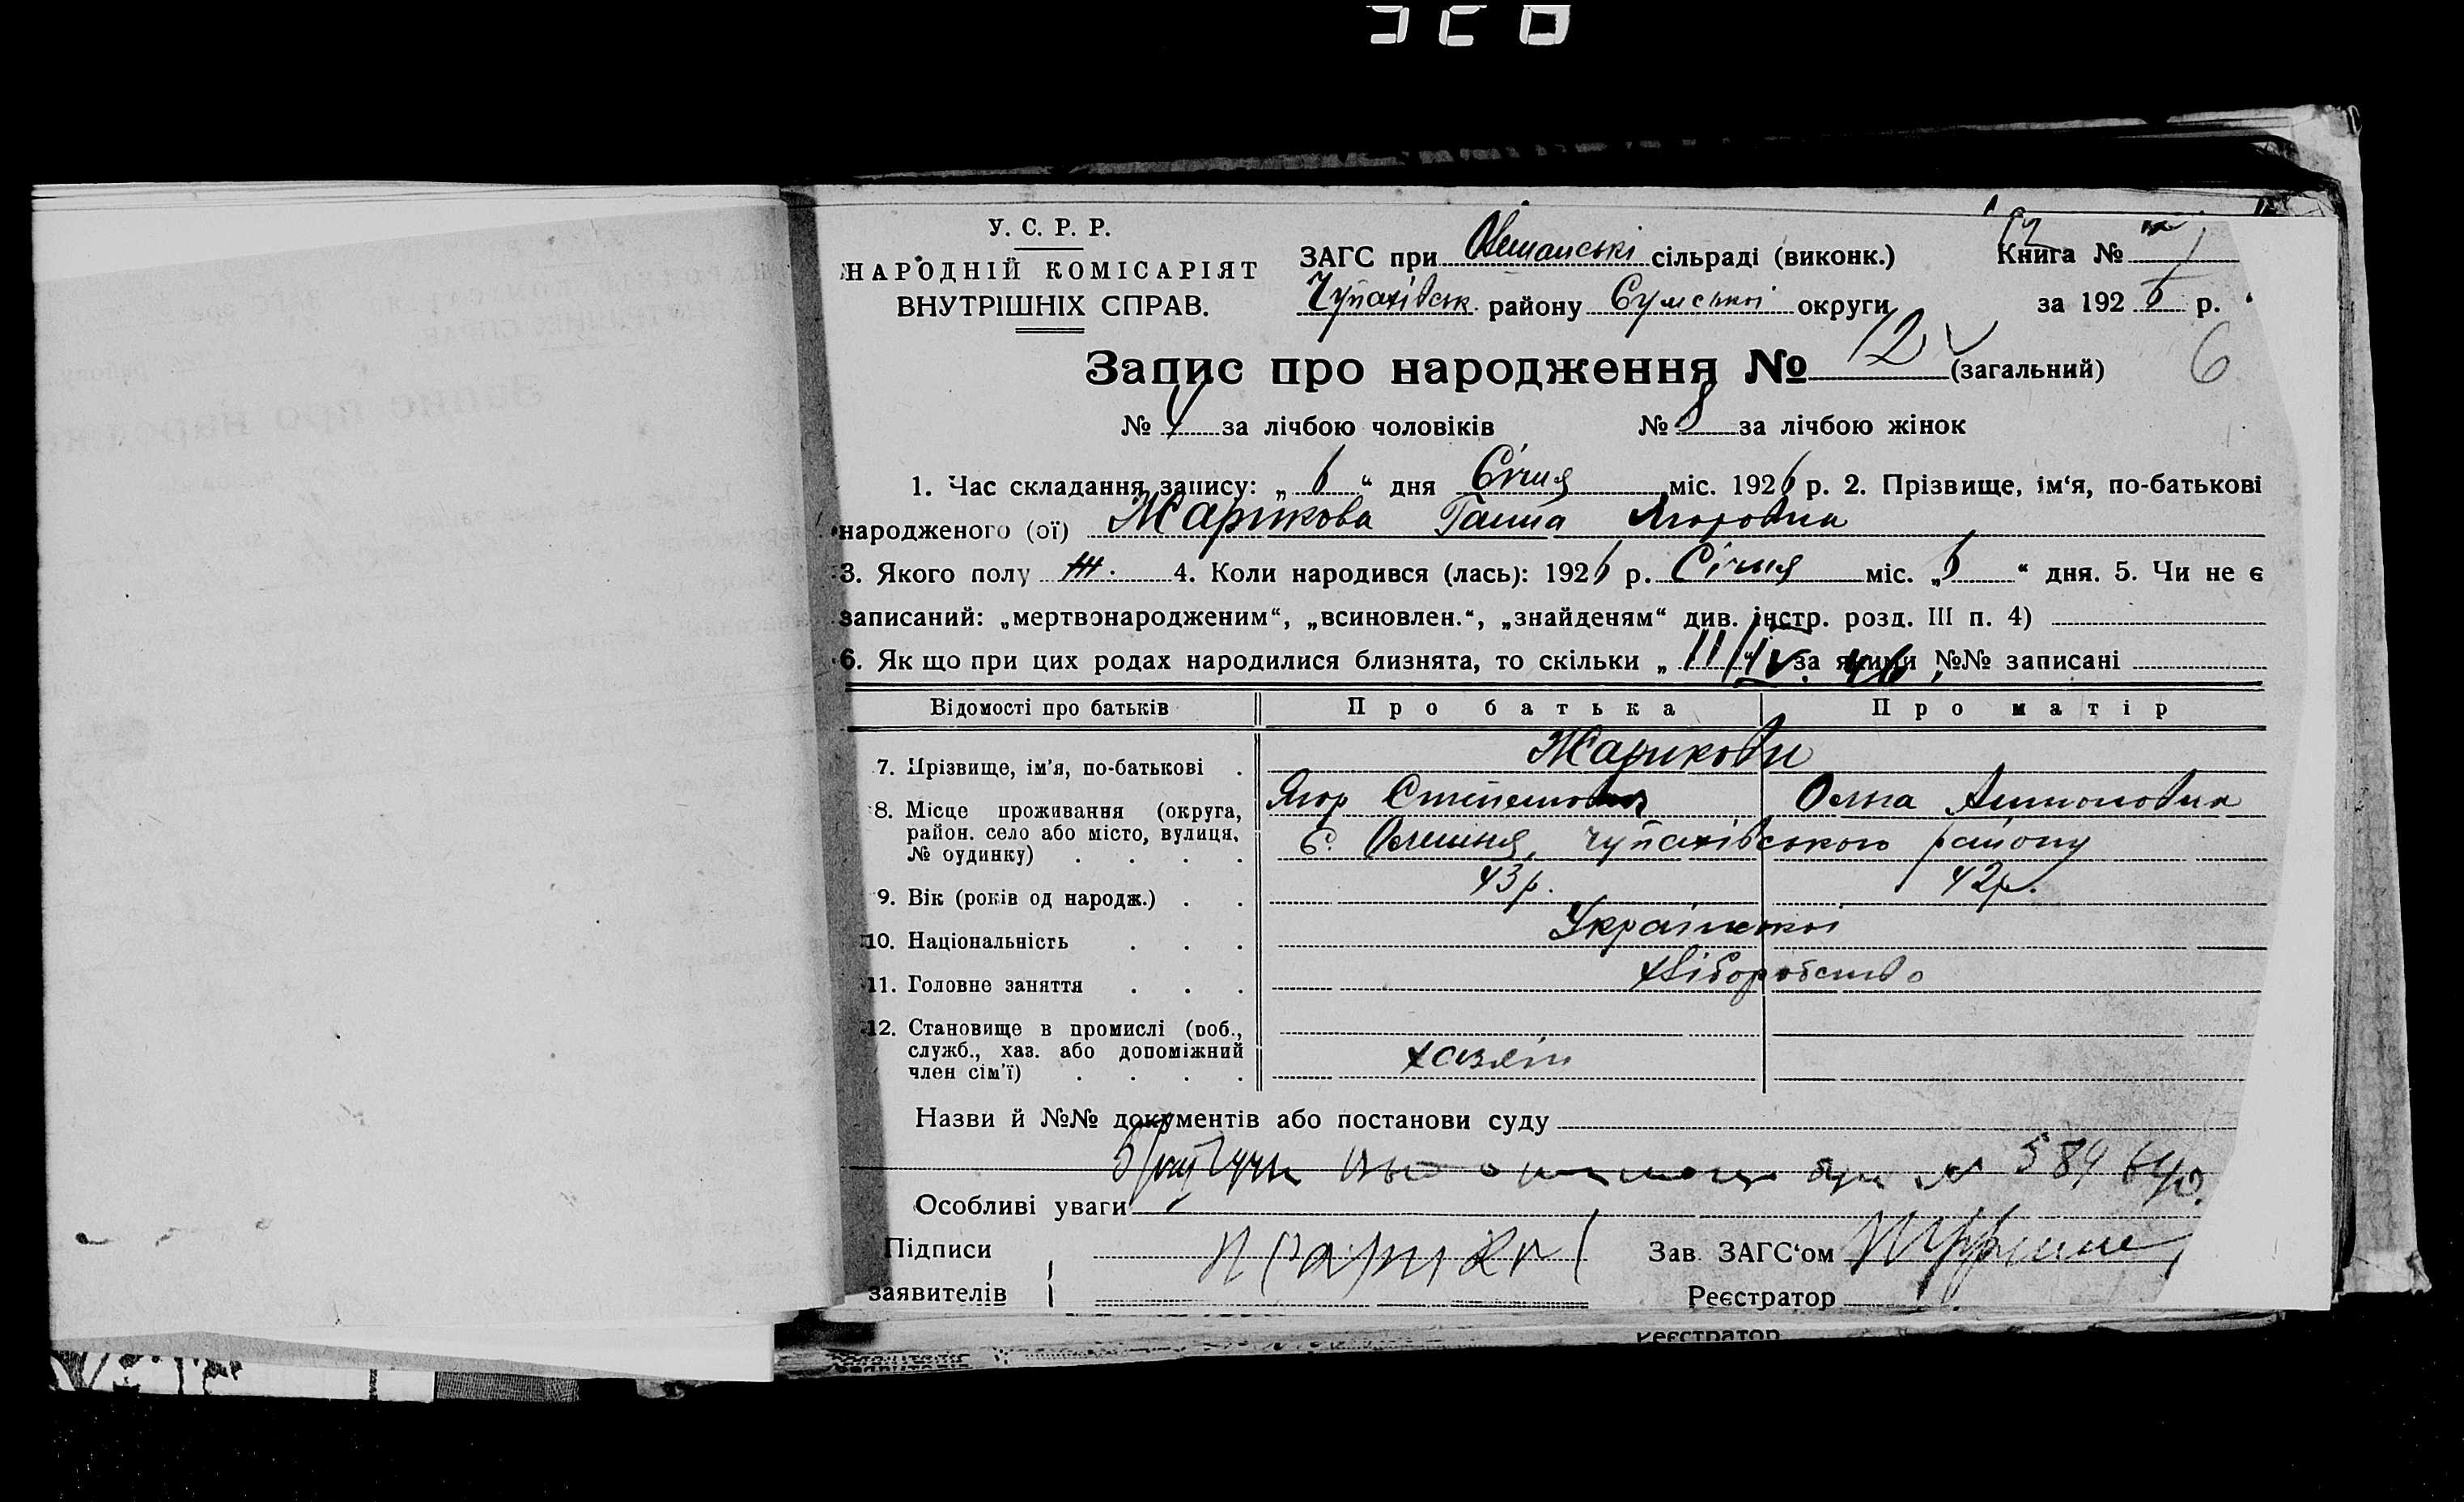 У. С. Р. Р.
НАРОДНІЙ КОМІСАРІЯТ
ВНУТРІШНІХ СПРАВ.
ЗАГС при Олешанські сільраді (виконк.)
Книга №
Чупахівськ району Сумської округи
за 1926 р.
Запис про народження № 12 (загальний)
6
№ 4 за лічбою чоловіків № 8 за лічбою жінок
1. Час складання запису: „ 6 “ дня Січня міс. 1926 р. 2. Прізвище, ім‘я, по-батькові
народженого (ої) Жарикова Ганна Ягоровна
3. Якого полу ж. 4. Коли народився (лась): 1926 р. Січня міс. „ 6 “ дня. 5. Чи не є
записаний: „мертвонародженим“, „всиновлен.“, „знайденям“ див. інстр. розд. III п. 4)
6. Як що при цих родах народилися близнята, то скільки „ за якими №№ записані
Відомості про батьків
Про батька
Про матір
7. Прізвище, ім'я, по-батькові
Жарикови
Ягор Степанович
Олена Антоновна
8. Місце проживання (округа,
район. село або місто, вулиця,
№ будинку)
с. Олешня, Чупахівського району
9. Вік (років од народж.)
43 р.
42 р.
10. Національність
Української
11. Головне заняття
хліборобство
12. Становище в промислі (роб.,
служб., хаз. або допоміжний
член сім'ї)
хазяїн
Назви й №№ документів або постанови суду
№ 584
Особливі уваги
Підписи
заявителів
Зав. ЗАГС‘ом
Реєстратор
Реєстратор